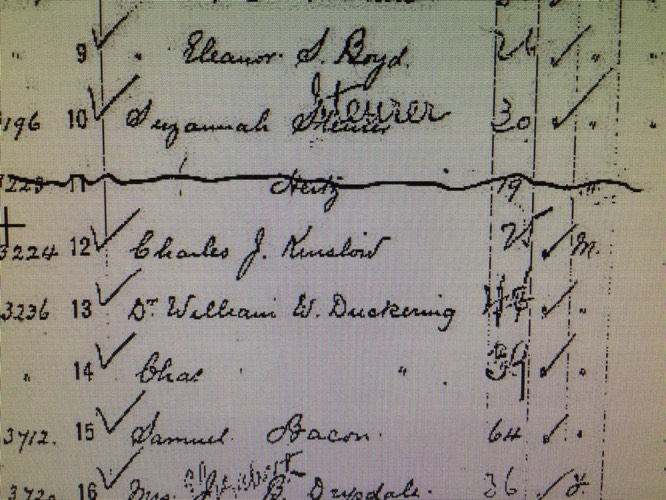 " 9 " Eleanor S. Boyd. 26 "
196 10 Suzannah Steurer 30 "
11 Hertz 19 "
3224 12 Charles J. Kinslow 25 M.
3236 13 Dr William W. Duckering "
" 14 Chas " 39 "
3712. 15 Samuel Bacon. 64 "
16 Mrs. B. Drysdale. 36 F